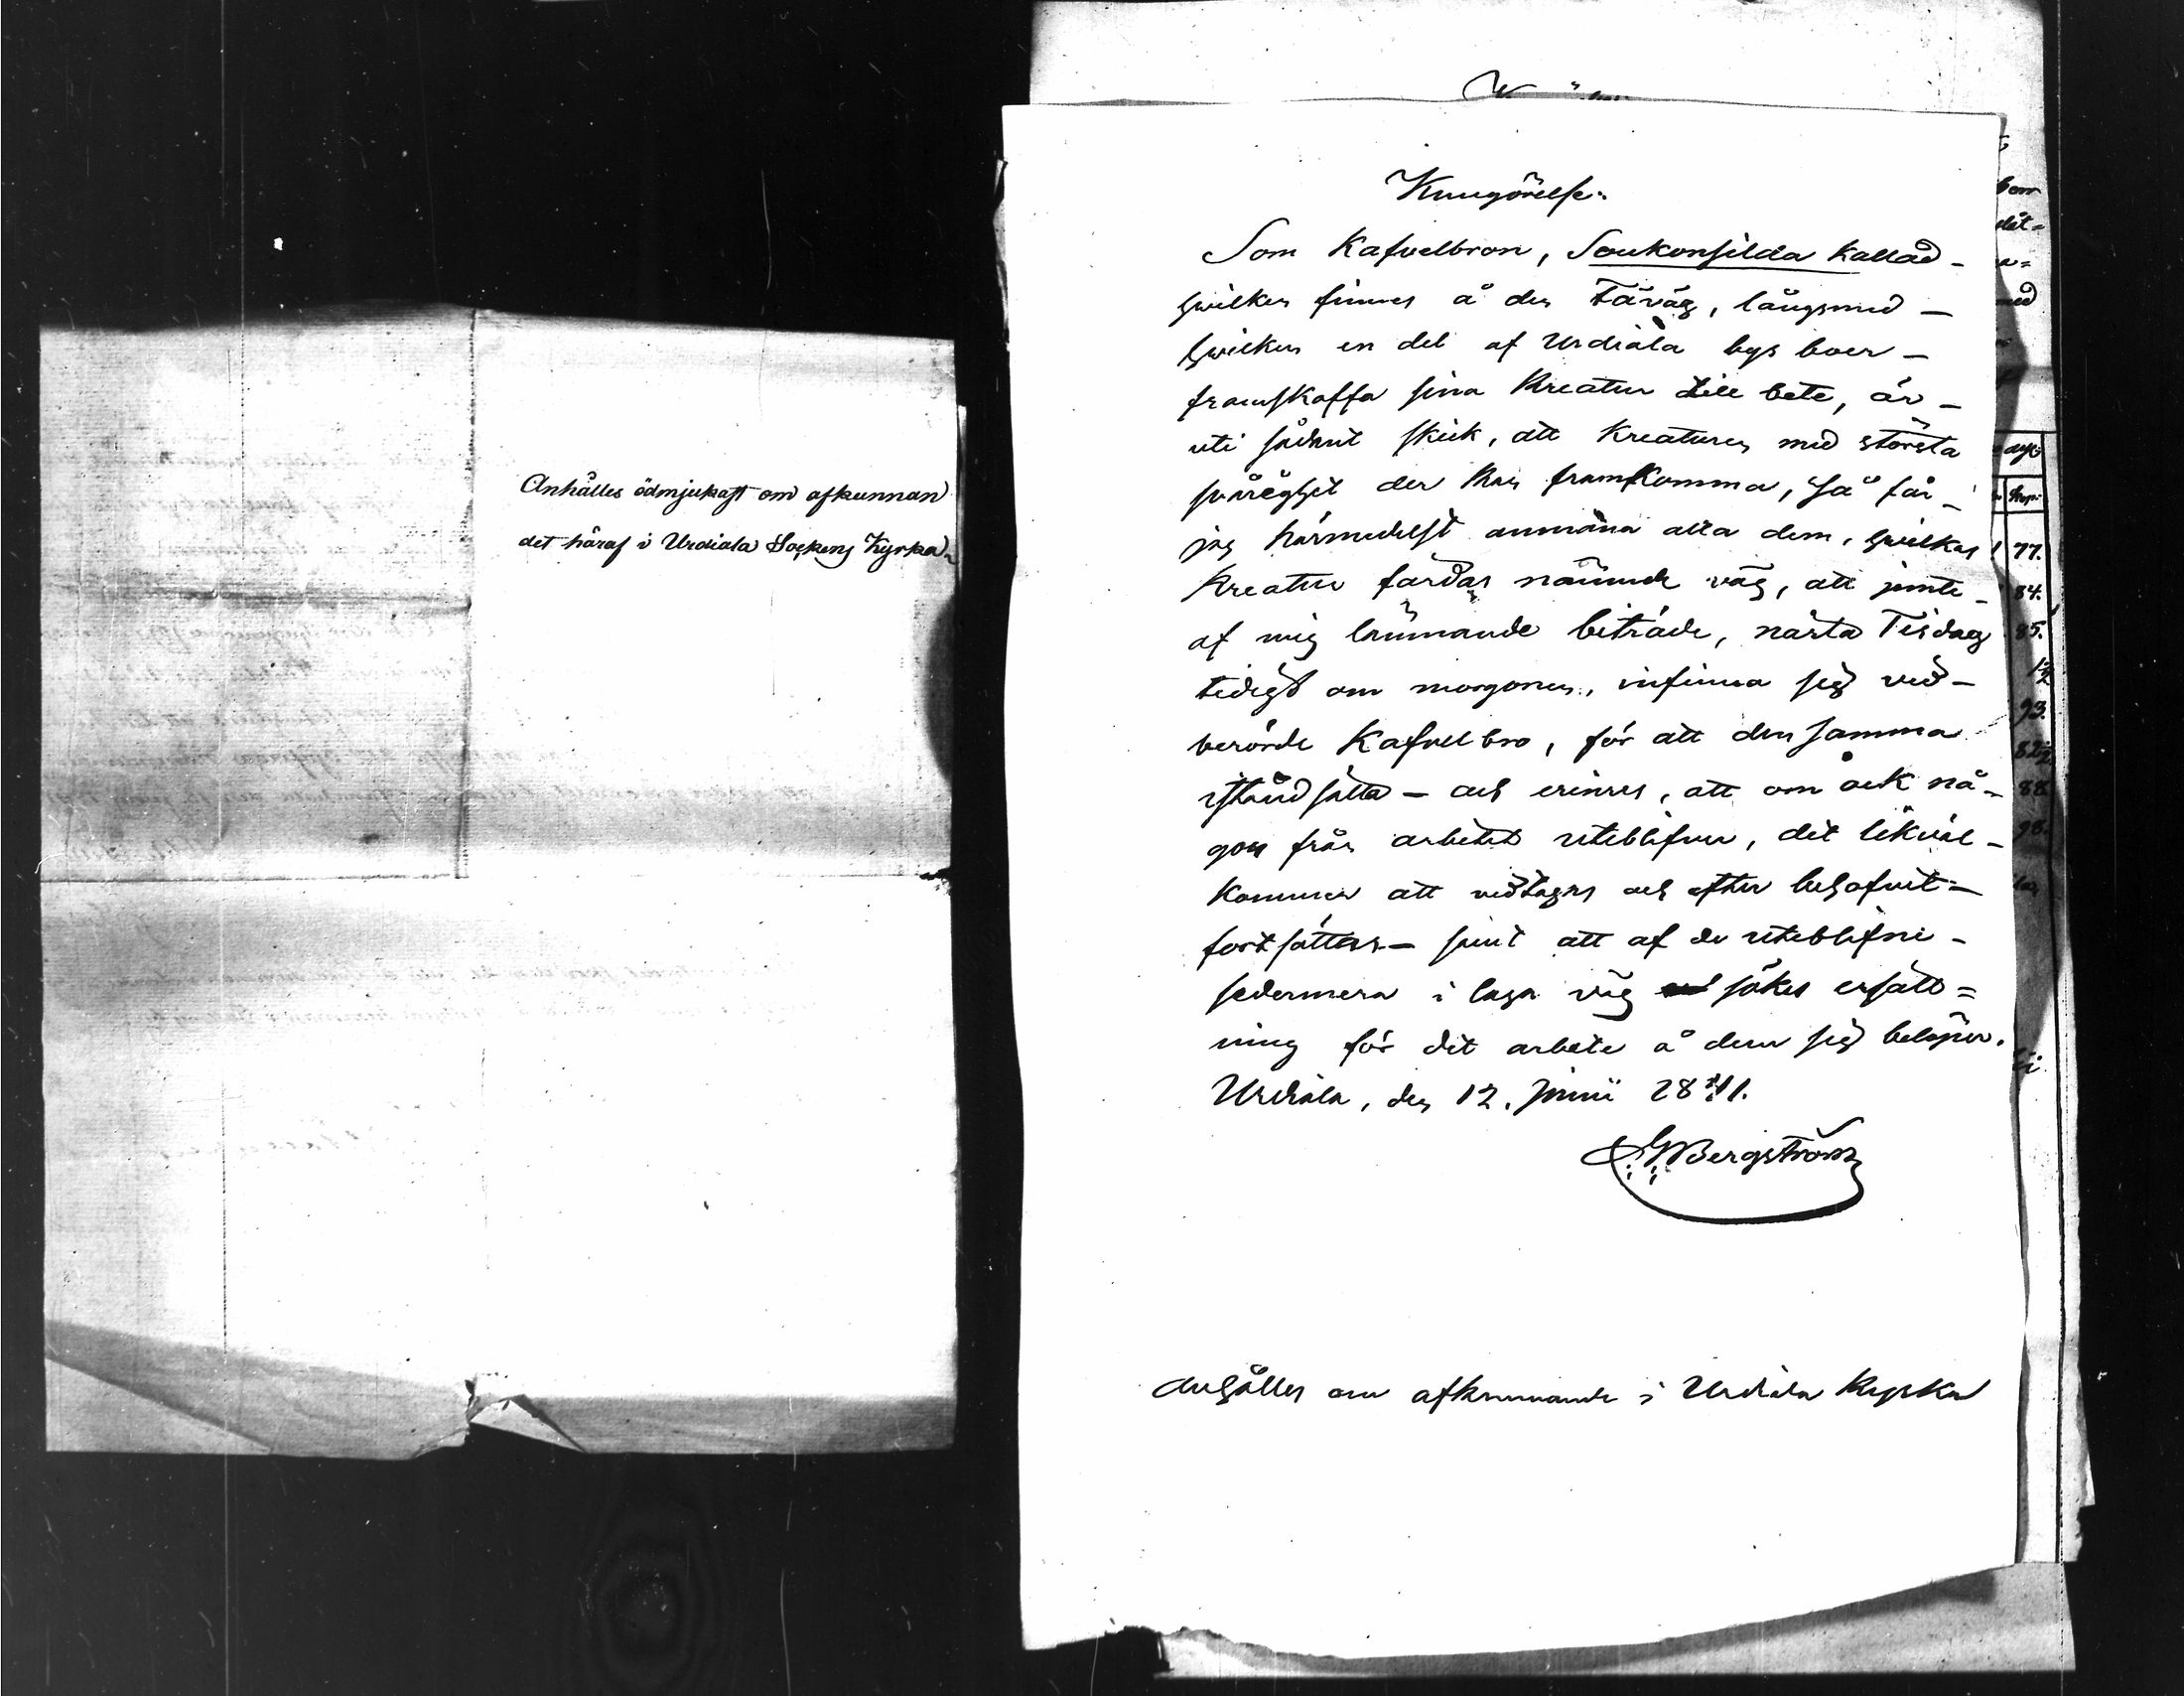 Anhålles ödmjukast om afkunnan
det häraf i Urdiala Sockens Kyrka
Kungörelse.
Som Kafvelbron, Soukonsilda kallad
hvilken finnes å den Täväg, långsmed
hvilken en del af Urdiala bys boer
framskaffa sina Kreatur till bete, är
uti sådant skick, att Kreaturen med största
svårighet der kan framkomma, Så får
jag härmedelst anmäna alla dem, hvilkas
Kreatur färdas nämnde väg, att jemte
af mig lämnande biträde, nästa Tisdag
tidigt om morgonen, infinna sig vid
berörde Kafvelbro, för att densamma
iståndsätta – och erinres, att om ock nå-
gon från arbetet uteblifver, det likväl
kommer att vidtagas och efter behofvet
fortsättas – samt att af de uteblifne
sedermera i laga väg sökes ersätt=
ning för det arbete å dem sig belöper.
Urdiala, den 12. Junii 1841.
Bergström
Anhålles om afkunnande i Urdiala Kyrka
77.
84.
85.
93.
88.
98.